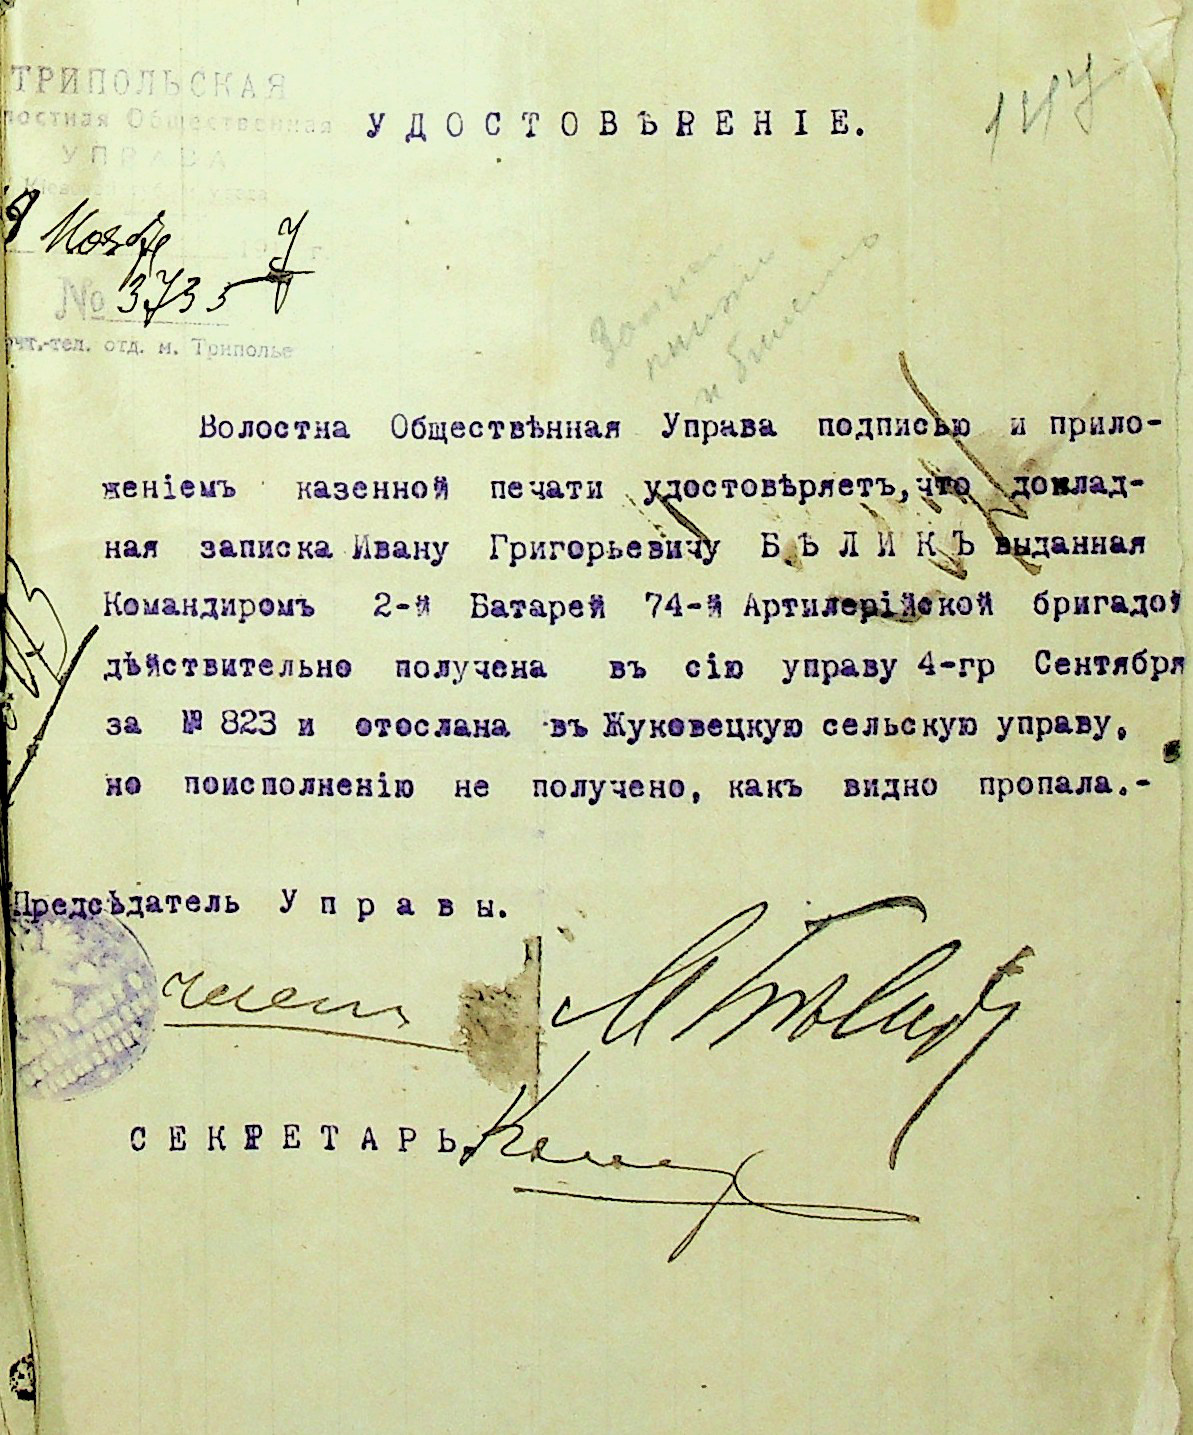 ТРИПОЛЬСКАЯ
Общественная
УПРАВА
УДОСТОВѢРЕНІЕ.
147
№ 3735
7
отд. м. Триполье
и
Волостна Обществѣнная Управа подписью и прило-
женіемъ казенной печати удостовѣряетъ, что доклад-
ная записка Ивану Григорьевичу БѢЛИКЪ выданная
Командиромъ 2-й Батарей 74-й Артилерійской бригадой
дѣйствительно получена въ сію управу 4-гр Сентября
за № 823 и отослана въ Жуковецкую сельскую управу,
но поисполненію не получено, какъ видно пропала.-
Предсѣдатель Управы.
член
СЕКРЕТАРЬ